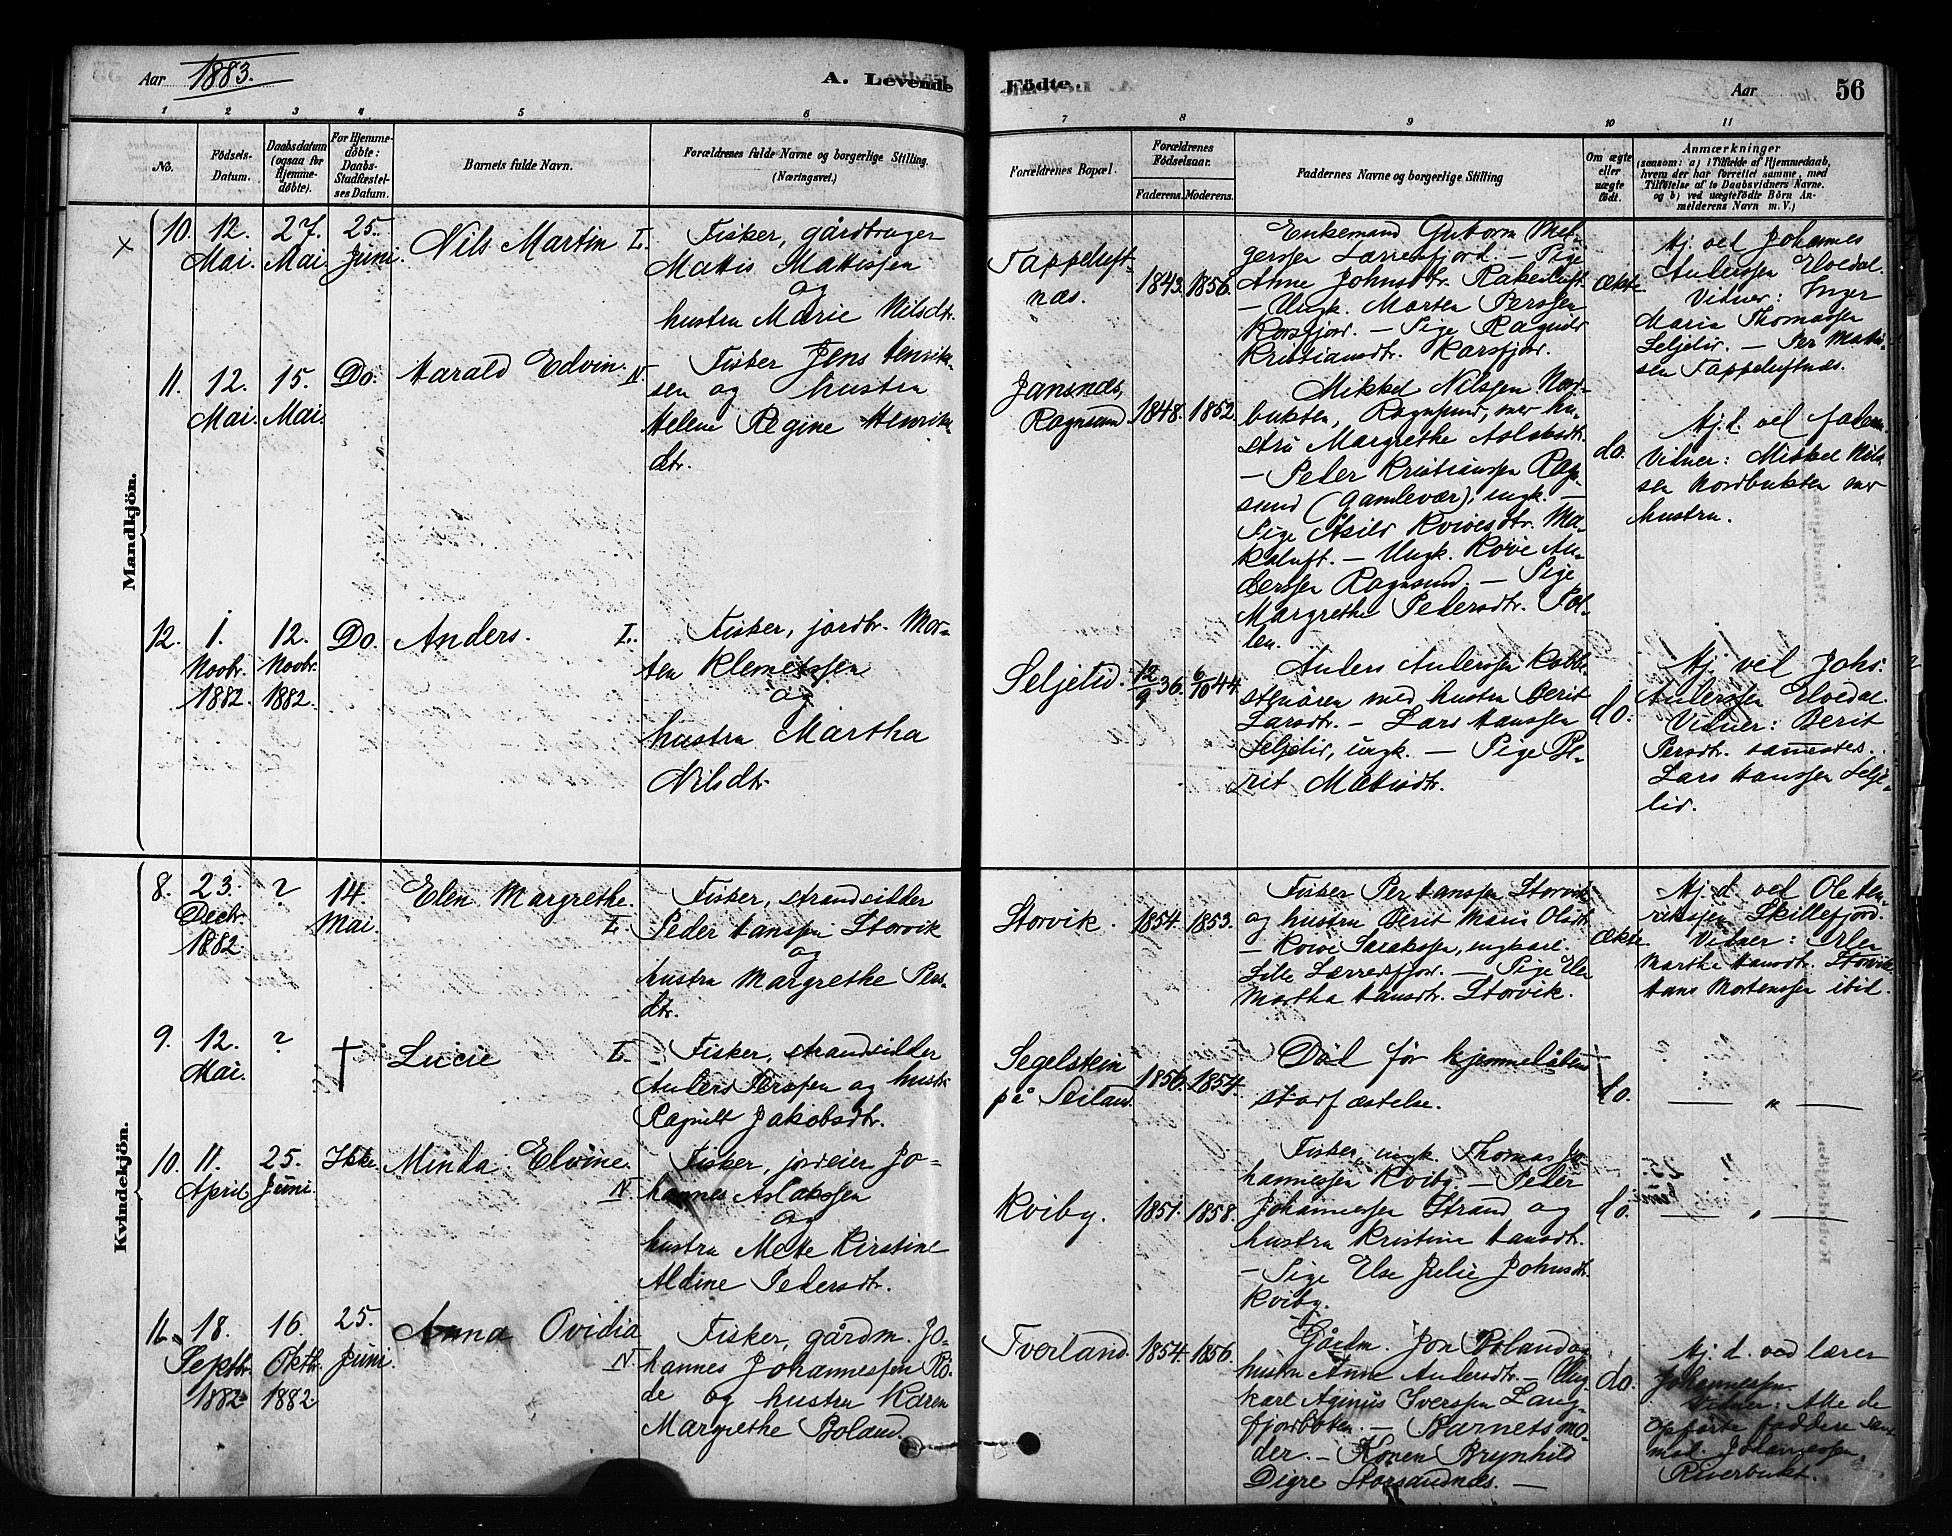 Aar 1883.
A. Levende Födte.
Aar 56
1 2 3 4 5 6 7 8 9 10 11
No.
Födsels-Datum.
Daabsdatum (ogsaa for Hjemmedöbte).
For Hjemmedöbte: Daabs-Stadfæstelses Datum.
Barnets fulde Navn.
Forældrenes fulde Navne og borgerlige Stilling. (Næringsvei.)
Forældrenes Bopæl.
Forældrenes Födselsaar.
Faderens. Moderens.
Faddernes Navne og borgerlige Stilling
Om ægte eller uægte födt.
Anmærkninger
(saasom: a) i Tilfælde af Hjemmedaab, hvem der har forrettet samme, med Tilföielse af to Daabsvidners Navne. og b) ved uægtefödte Börn Anmelderens Navn m. V.)
Mandkjön.
10. 12. Mai. 27. Mai 25. Juni. Nils Martin L.
Fisker, gårdbruger
Mattis Mattissen
og
hustru Marie Nilsdtr.
Tappeluftnæs.
1843. 1856.
Enkemand Guttorm
Lærresfjord. — Pige
Anne Johnsdtr.
— Ungk. Morten Perssen
Korsfjor. — Pige Ragnild
Kristiansdtr. Korsfjor.
Ækte
Hj. ved Johannes
Anderssen Elvedal.
Vidner: Inger
Maria Thomassen
Seljelid. — Per Mattissen
Tappeluftnæs.
11. 12. Mai. 15. Mai. Do. Harald Edvin. N
Fisker Jens Henriksen
og hustru
Helene Regine Henriksdtr.
Jansnæs, Rognsund
1848. 1852.
Mikkel Nilssen Nordbukten,
Rognsund, med hustru
Margrethe Aslaksdtr.
— Peder Kristianssen Rognsund
(Gamlevær), ungk. —
Pige
— Ungk. Anderssen
Rognsund. — Pige
Margrethe Pedersdtr. Pollen.
do.
Hj. d. ved faderen
Vidner: Mikkel Nilssen
Nordbukten med
hustru.
12. 1. Novbr. 1882. 12. Novbr. 1882. Do. Anders. L.
Fisker, jordbr. Morten
Klemetssen
og
hustru Martha
Nilsdtr.
Seljelid.
12/9 36. 6/10 44.
Anders Anderssen
med hustru Berit
Larsdtr. — Lars Hanssen
Seljelid, ungk. — Pige Berit
Mathisdtr.
do.
Hj. ved Johs.
Anderssen Elvedal.
Vidner: Berit
Persdtr. sammestes.
Lars Hanssen Seljelid.
Kvindekjön.
8. 23. Decbr. 1882 ? 14. Mai. Elen Margrethe. L.
Fisker, strandsidder
Peder Hanssen Storvik
og
hustru Margrethe Persdtr.
Storvik.
1854. 1853.
Fisker Per Hanssen Storvik
og hustru Berit Maria Olsdtr.
ungkarl.
Lille Lærresfjor. — Pige Elen
Martha Hansdtr. Storvik.
Ækte
Hj. d. ved Ole Henrikssen
Skillefjord.
Vidner: Elen
Martha Hansdtr. Storvik
Hans Mortenssen ibid.
9. 12. Mai. ? † Lucie L.
Fisker, strandsidder
Anders Perssen og hustr.
Ragnilt Jakobsdtr.
Segelstein på Seiland.
1856. 1854.
Död før hjemmedåbens
stadfæstelse.
do.
— „ —
10. 11. April 25. Juni. Ikke Minda Elvine. N
Fisker, jordeier Johannes
Aslakssen
og
hustru Mette Kirstine
Aldine Pedersdtr.
Kviby.
1851. 1858.
Fisker, ungk. Thomas Johannessen
Kviby. — Peder
Johannessen Strand og
hustru Kristine Hansdtr.
— Pige Else Julie Johnsdtr.
Kviby.
do.
— „ —
11. 18. Septbr. 1882 16. Oktb. 1882 25. Juni. Anna Ovidia N.
Fisker, gårdm. Johannes
Johannessen Rode
og hustru Karen
Margrethe Boland.
Tverland.
1854. 1856.
Gårdm. Jon Boland og
hustru Anne Andersdtr. — Ungkarl
Aginus Iverssen Langfjordbotn.
— Barnets moder.
— Konen Brynhild
Digre Storsandnæs. —
do.
Hj. d. ved lærer
Johannessen.
Vidner: Alle de
opførte faddere samt
Johannessen,
Riverbukt.